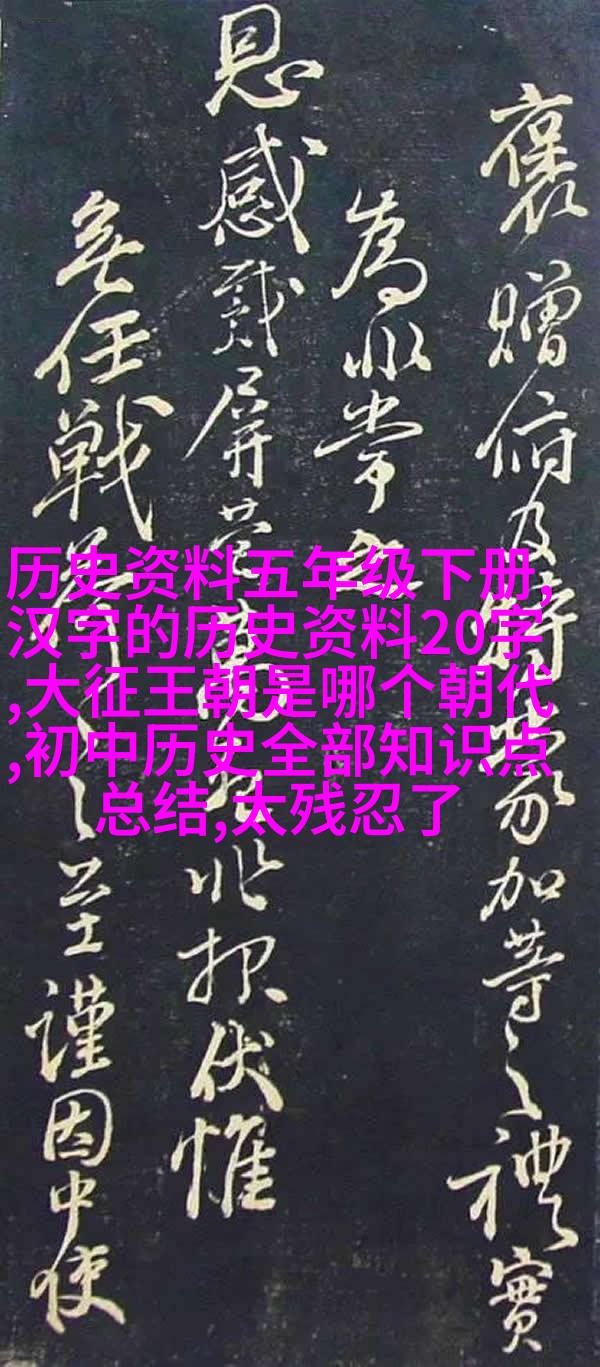 褒贈俯及特蒙加等之禮實
為非常
恩感戴屏營報伏惟
無任戰荷之至謹因中使
历史资料五年级下册,
汉字的历史资料20字
,大征王朝是哪个朝代
,初中历史全部知识点
总结,太残忍了